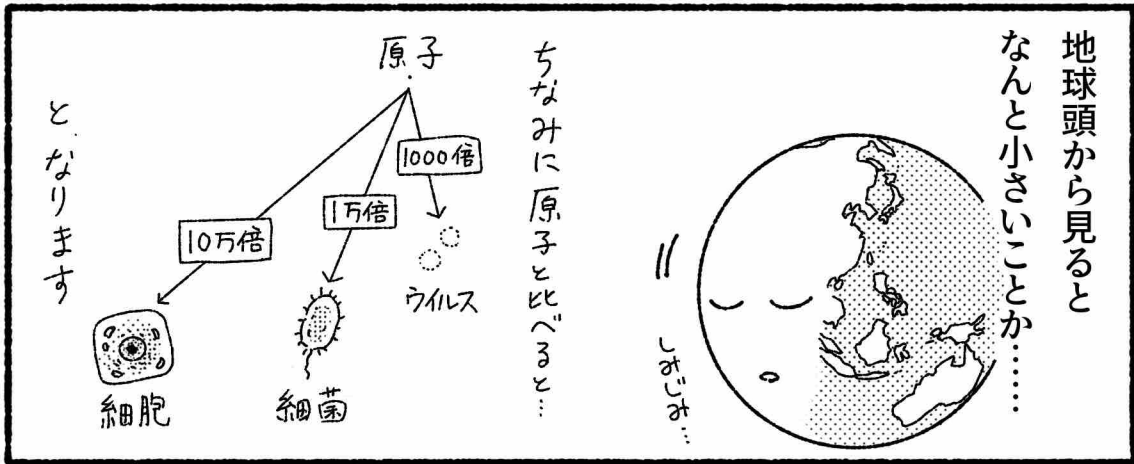 地球頭から見ると
なんと小さいことか……
しみじみ…
ちなみに原子と比べると…
原子
1000倍
ウイルス
1万倍
細菌
10万倍
細胞
と、なります